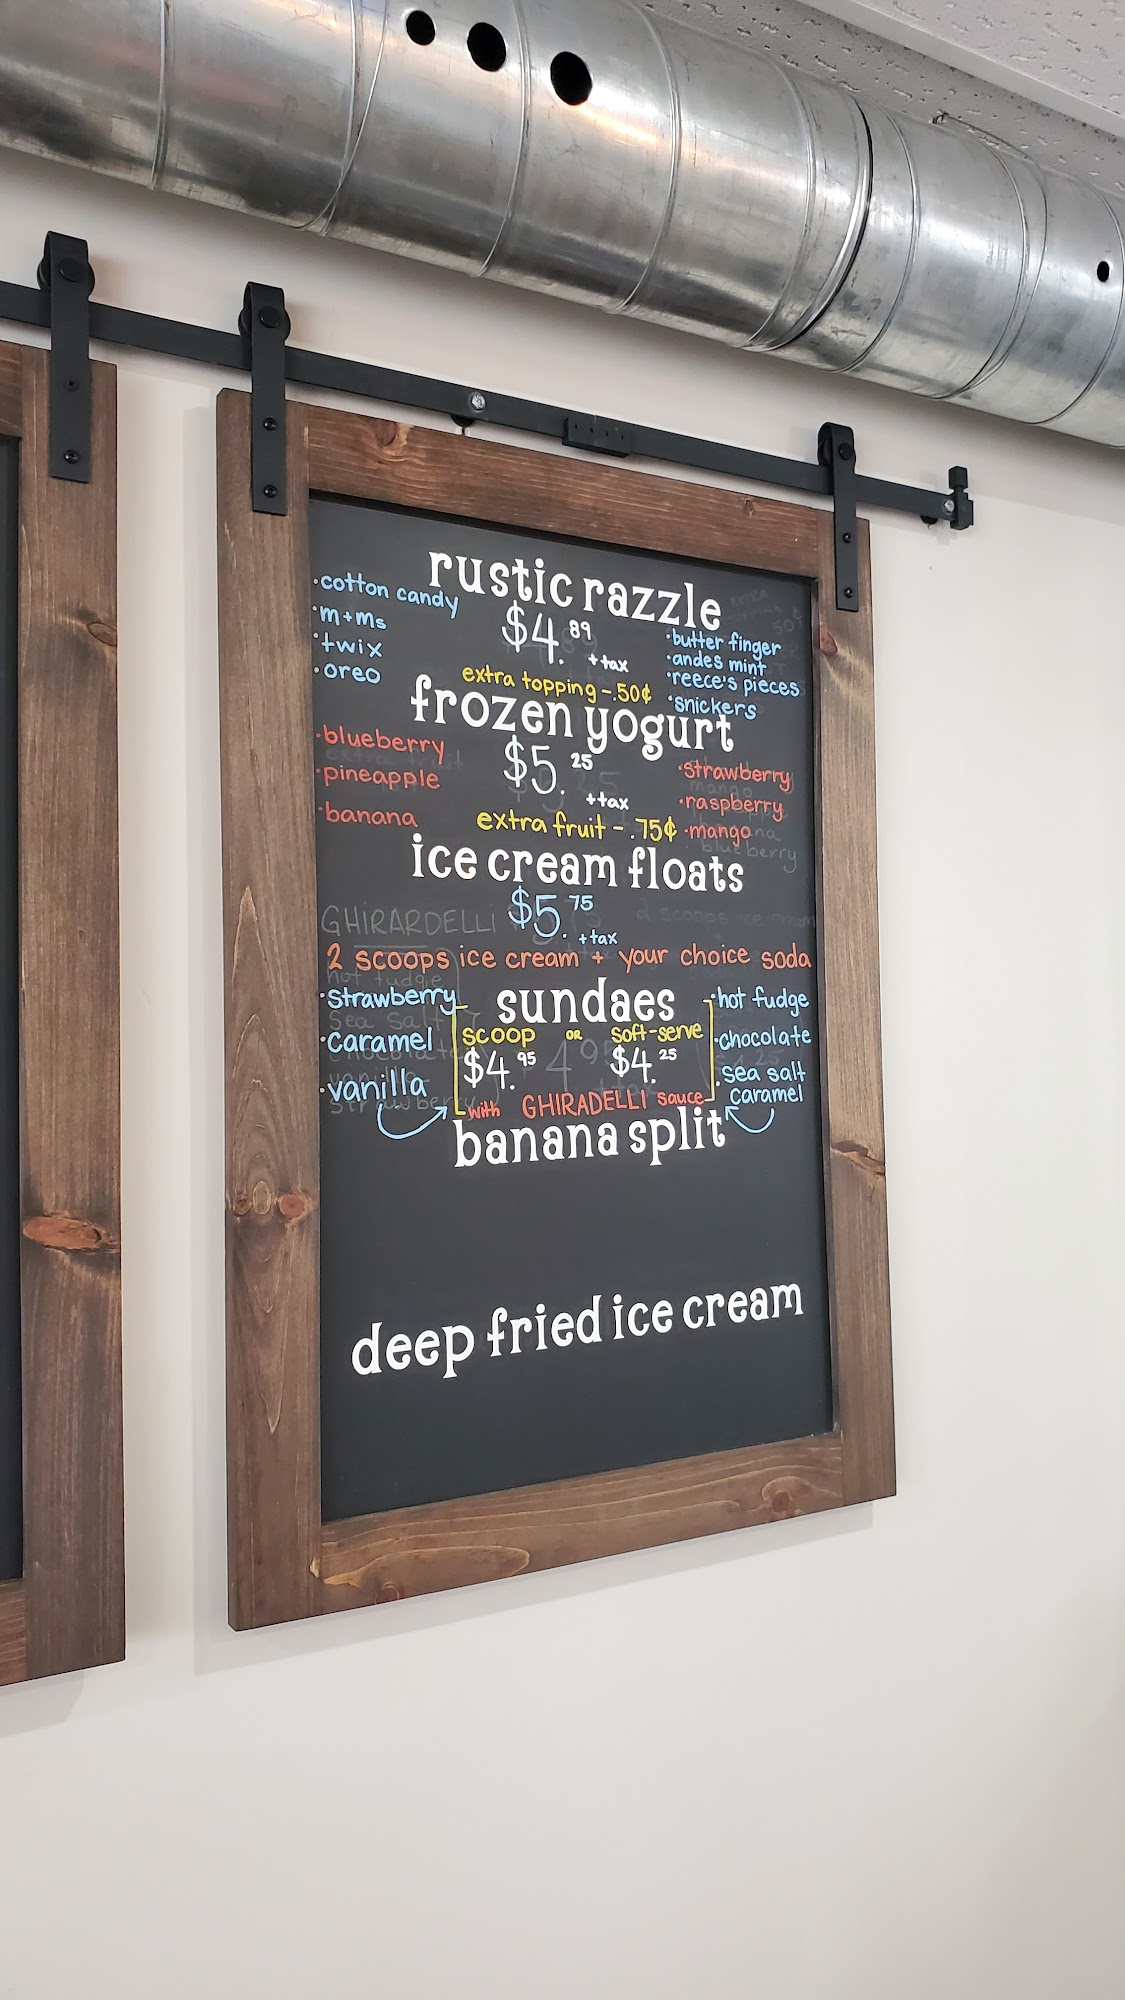 rustic razzle
·cotton candy
·m+ms
·twix
·oreo
$4.89
+tax
·butter finger
·andes mint
·reece's pieces
·snickers
extra topping - .50¢
frozen yogurt
·blueberry
·pineapple
·banana
$5.25
+tax
·strawberry
·raspberry
·mango
extra fruit - .75¢
ice cream floats
GHIRARDELLI
$5.75
+tax
2 scoops ice cream
2 scoops ice cream + your choice soda
hot fudge
sundaes
·strawberry
·caramel
·vanilla
scoop or soft-serve
$4.95 $4.25
with GHIRADELLI sauce
·hot fudge
·chocolate
·sea salt
caramel
banana split
deep fried ice cream